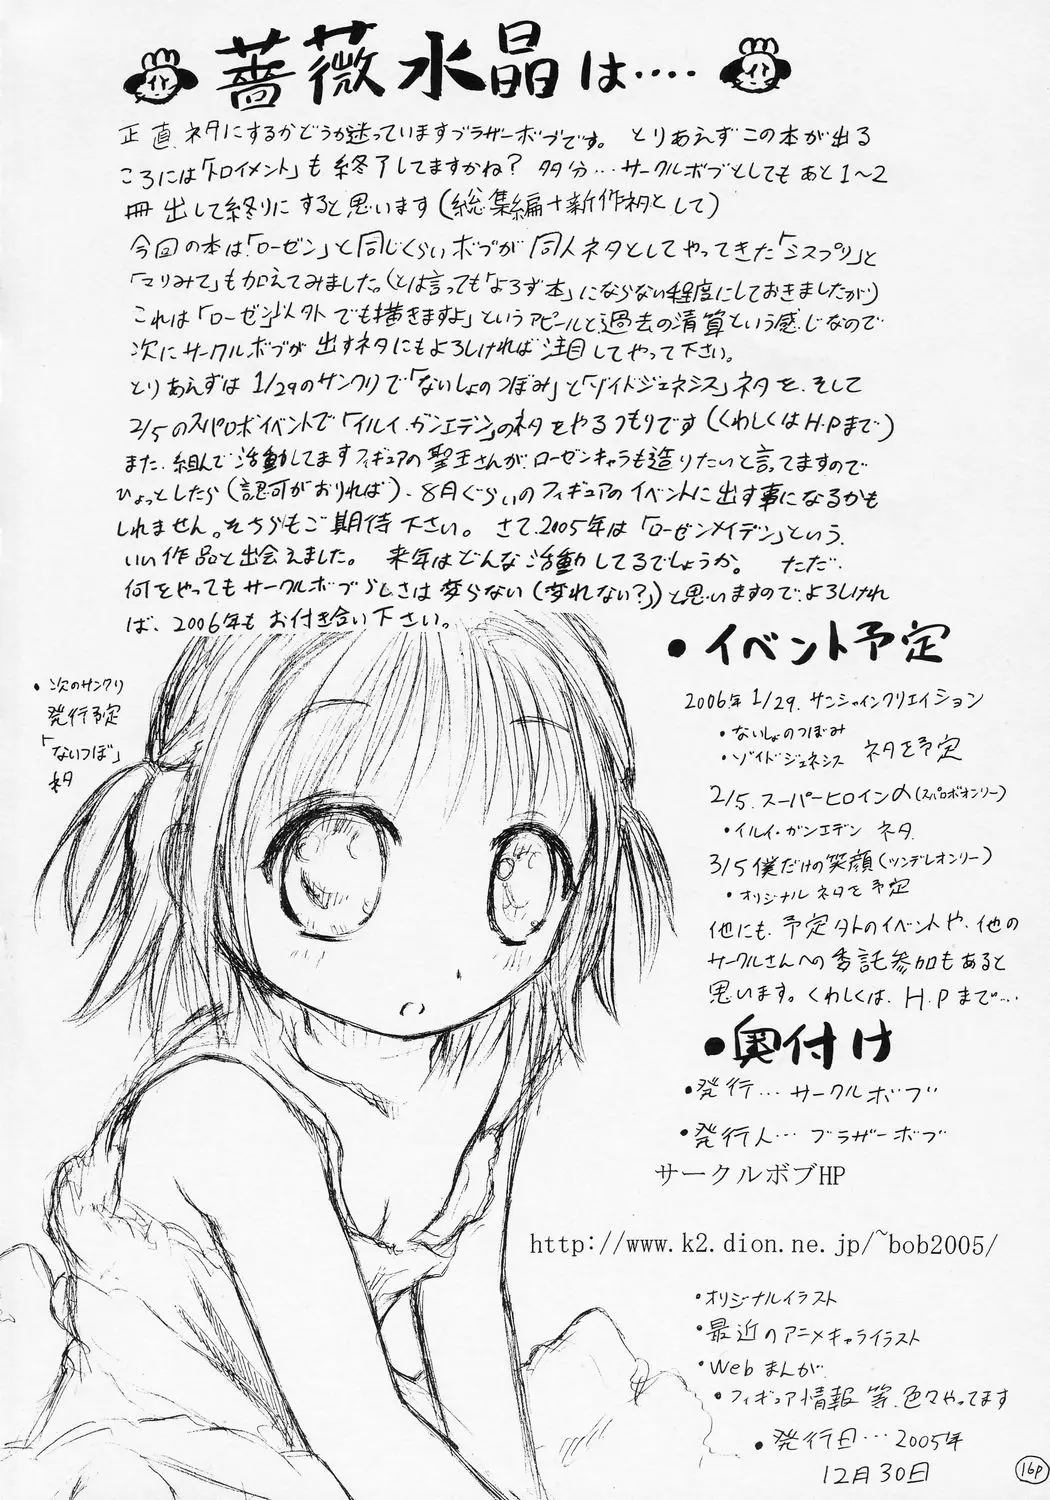 薔薇水晶は‥‥
正直ネタにするかどうか迷っていますブラザーボブです。 とりあえずこの本が出る
ころには「トロイメント」も終了してますかね? 多分…サークルボブとしてもあと1~2
冊出して終りにすると思います(総集編+新作ネタとして)
今回の本は「ローゼン」と同じくらいボブが同人ネタとしてやってきた「シスプリ」と
「マリみて」も加えてみました。(とは言っても「よろず本」にならない程度にしておきましたが)
これは「ローゼン以外でも描きますよ」というアピールと、過去の清算という感じなので
次にサークルボブが出すネタにもよろしければ注目してやって下さい。
とりあえずは1/29のサンクリで「ないしょのつぼみ」と「ゾイドジェネシス」ネタを、そして
2/5のスパロボイベントで「イルイ・ガンエデン」のネタをやるつもりです(くわしくはH.Pまで)
また、組んで活動してますフィギュアの聖王さんが、ローゼンキャラも造りたいと言ってますので
ひょっとしたら(認可がおりれば)、8月ぐらいのフィギュアのイベントに出す事になるかも
しれません。そちらもご期待下さい。 さて、2005年は「ローゼンメイデン」という、
いい作品と出会えました。 来年はどんな活動してるでしょうか。 ただ、
何をやってもサークルボブらしさは変らない(変れない?)と思いますので、よろしけれ
ば、2006年もお付き合い下さい。
・次のサンクリ
発行予定
「ないつぼ」
ネタ
・イベント予定
2006年 1/29. サンシャインクリエイション
・ないしょのつぼみ
・ゾイドジェネシス ネタを予定
2/5. スーパーヒロインの(スパロボオンリー)
・イルイ・ガンエデン ネタ
3/5 僕だけの笑顔(ツンデレオンリー)
・オリジナルネタを予定
他にも、予定外のイベントや、他の
サークルさんへの委託参加もあると
思います。くわしくは、H.Pまで…
・奥付け
・発行…サークルボブ
・発行人…ブラザーボブ
サークルボブHP
http://www.k2.dion.ne.jp/~bob2005/
・オリジナルイラスト
・最近のアニメキャライラスト
・Webまんが
・フィギュア情報 等、色々やってます
・発行日…2005年
12月30日
16P